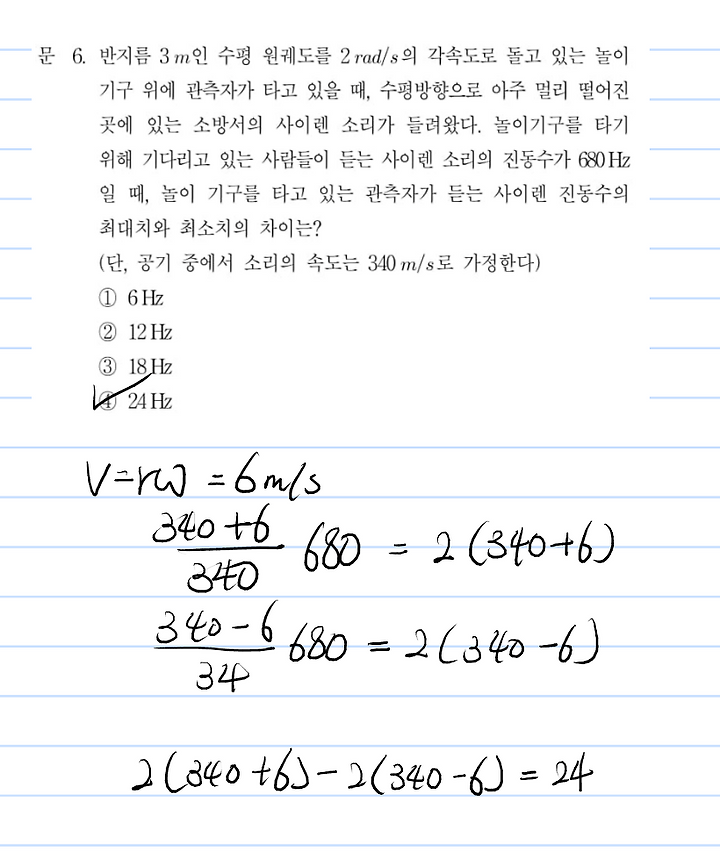 문 6. 반지름 3m인 수평 원궤도를 2rad/s의 각속도로 돌고 있는 놀이
기구 위에 관측자가 타고 있을 때, 수평방향으로 아주 멀리 떨어진
곳에 있는 소방서의 사이렌 소리가 들려왔다. 놀이기구를 타기
위해 기다리고 있는 사람들이 듣는 사이렌 소리의 진동수가 680Hz
일 때, 놀이 기구를 타고 있는 관측자가 듣는 사이렌 진동수의
최대치와 최소치의 차이는?
(단, 공기 중에서 소리의 속도는 340m/s로 가정한다)
① 6Hz
② 12Hz
③ 18Hz
④ 24Hz
V=rω =6m/s
340+6
340
680 = 2(340+6)
340-6
34
680 = 2(340-6)
2(340+6)-2(340-6) = 24